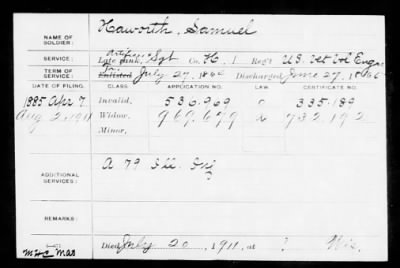 NAME OF SOLDIER: Haworth, Samuel
SERVICE: Late rank, Artificer & Sgt Co. H, 1 Reg't U.S. Vet Vol Engs
TERM OF SERVICE: Enlisted July 27, 1864 Discharged June 27, 186
DATE OF FILING. CLASS. APPLICATION NO. LAW. CERTIFICATE NO.
1885 Apr 7. Invalid, 536.969 335.189
Aug 2, 1911 Widow, 969.699 732.192
Minor,
ADDITIONAL SERVICES: A 79 Ill. Inf
REMARKS:
Died July 20, 1911, at ? Wis.